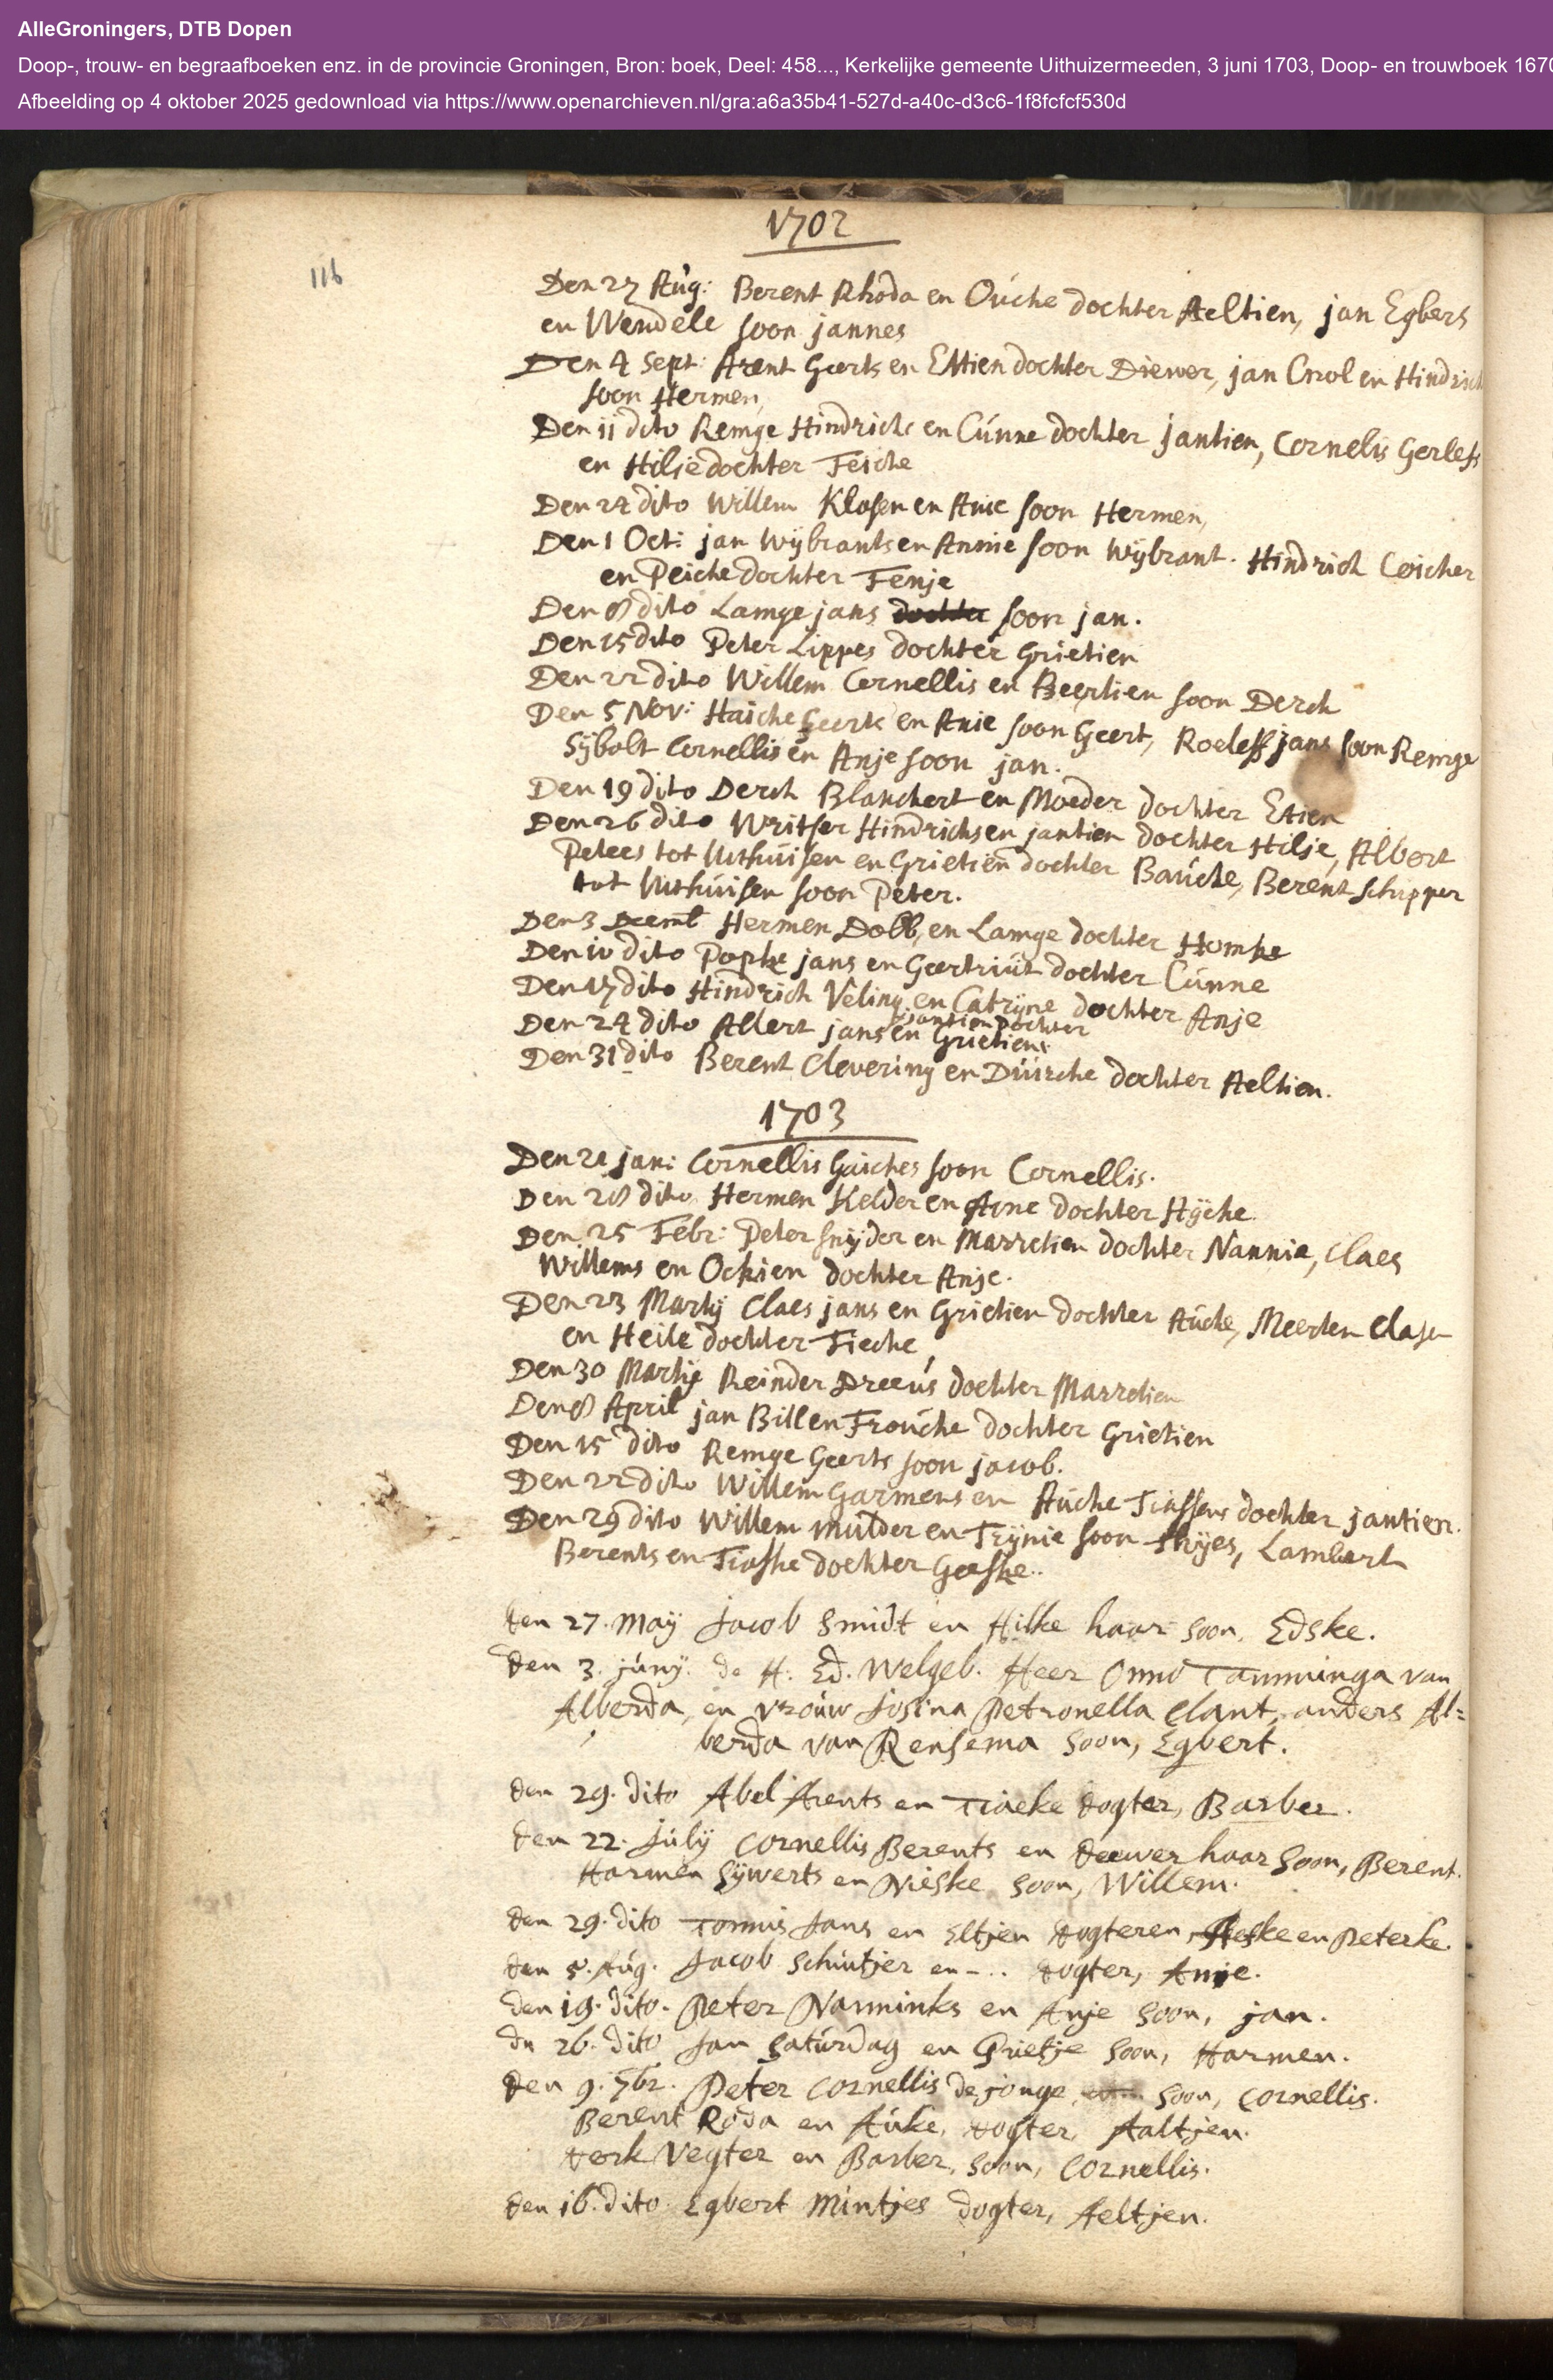 AlleGroningers, DTB Dopen
Doop-, trouw- en begraafboeken enz. in de provincie Groningen, Bron: boek, Deel: 458..., Kerkelijke gemeente Uithuizermeeden, 3 juni 1703, Doop- en trouwboek 1670
Afbeelding op 4 oktober 2025 gedownload via https://www.openarchieven.nl/gra:a6a35b41-527d-a40c-d3c6-1f8fcfcf530d
1702
116
Den 27 Aug: Berent Rhoda en Ouche dochter Aeltien, jan Egbers
en Wendele soon jannes
Den 4 Sept: Arent Geerts en Ettien dochter Diewer, jan Crol en Hindrich
soon Hermen,
Den 11 dito Remge Hindrichs en Cunne dochter jantien, Cornelis Gerlefs
en Hilje dochter Feiche
Den 24 dito Willem Klasen en Anie soon Hermen,
Den 1 Oct: jan Wijbrants en Annie soon Wijbrant. Hindrich Coicher
en Peiche dochter Fenje
Den 8 dito Lamge jans dochter soon jan.
Den 15 dito Peter Lippes dochter Grietien
Den 22 dito Willem Cornellis en Beertien soon Derch
Den 5 Nov: Haiche Geerts en Anie soon Geert, Roeleff jans soon Remge
Sijbolt Cornellis en Anje soon jan.
Den 19 dito Derch Blanchert en Moeder dochter Etien
Den 26 dito Writser Hindrichs en jantien dochter Hilje, Albert
Peters tot Uithuisen en Grietien dochter Bauche, Berent Schipper
tot Uithuisen soon Peter.
Den 3 Decemb Hermen Dobb, en Lamge dochter Homke
Den 10 dito Popke jans en Geertruit dochter Cunne
Den 17 dito Hindrich Veling en Catrijne dochter Anje
jantien dochter
Den 24 dito Allert jans en Grietien
Den 31 dito Berent Clevering en Duirche dochter Aeltien.
1703
Den 21 jan: Cornellis Gaiches soon Cornellis.
Den 28 dito Hermen Kelder en Arne dochter Hijche
Den 25 Febr: Peter Snijder en Marretien dochter Nannia, Claes
Willems en Ockien dochter Anje.
Den 23 Martij Claes jans en Grietien dochter Auche, Meerten Clasen
en Heile dochter Fieche
Den 30 Martij Reinder Dreeus dochter Marretien
Den 8 April jan Bill en Frouche dochter Grietien
Den 15 dito Remge Geerts soon jacob.
Den 22 dito Willem Garmens en Auche Tiassens dochter jantien.
Den 29 dito Willem mulder en Trijnie soon Thijes, Lambert
Berents en Tiaske dochter Geeske..
den 27. Maij Jacob Smidt en Hilke haar soon, Edske.
den 3. junij. de H. Ed. Welgeb. Heer Onno Tamminga van
Alberda, en vrouw Josina Petronella Clant, anders Al=
berda van Rensema soon, Egbert.
den 29. dito Abel Arents en Tiaeke dogter, Barber.
den 22. Julij Cornellis Berents en deewer haar Soon, Berent.
Harmen Sijwerts en Nieske soon, Willem.
den 29. dito Tonnis Jans en Eltjen dogteren, Heske en Peterke.
den 5. Aug. Jacob Schuitjer en -.. dogter, Anje.
den 19. dito. Peter Narminks en Anje soon, jan.
dn 26. dito Jan Saturdag en Grietje Soon, Harmen.
den 9. 7br. Peter Cornellis de jonge, soon, Cornellis.
Berent Roda en Auke, dogter, Aaltjen.
derk Vegter en Barber, soon, Cornellis.
den 16. dito Egbert Mintjes dogter, Aeltjen.